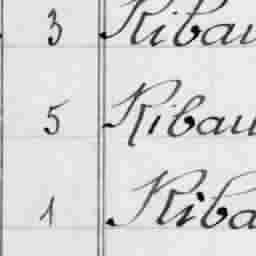 3 Ribau
5 Ribau
1 Riba